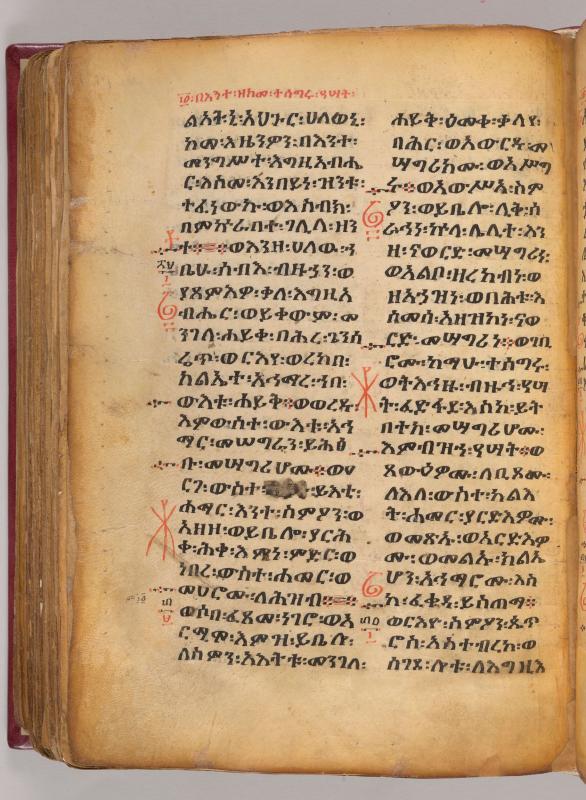 ፲፬፡በእንተ፡ዘከመ፡ተሰግሩ፡ዓሣት፡
ልኣት፡ኒ፡አህጉር፡ሀለወኒ፡
ከመ፡እዜንዎን፡በእንተ፡
መንግሥተ፡እግዚአብሔ
ር፡እስመ፡እንበይነ፡ዝንቱ፡
ተፈነውኩ፡ወእሰብክ፡
በምኵራበተ፡ገሊላ፡ዘን
ተ፡ወእንዘ፡ሀለው፡ኀ
ቤሁ፡ሰብእ፡ብዙኃን፡ወ
ያጸምእዎ፡ቃለ፡እግዚአ
ብሔር፡ወይቀውም፡መ
ንገለ፡ሐይቀ፡ባሕረ፡ጌንሳ
ሬጥ፡ወርእየ፡ወረከበ፡
ክልኤተ፡አሕማረ፡ኀበ፡
ውእቱ፡ሐይቅ፨ወወረዱ፡
እምውስተ፡ውእቱ፡አሕ
ማር፡መሣግራን፡ይሐፅ
ቡ፡መሣግሪሆሙ፨ወዐ
ርገ፡ውስተ፡ይእቲ፡
ሐማር፡እንተ፡ስምዖን፡ወ
አዘዘ፡ወይቤሎ፡ያርሕ
ቅ፡ሕቀ፡እምነ፡ምድር፡ወ
ነበረ፡ውስተ፡ሐመር፡ወ
መሀሮሙ፡ለሕዝብ፨
ወሶበ፡ፈጸመ፡ነገሮ፡ወአ
ርመመ፡እምዝ፡ይቤሎ፡
ለስምዖን፡አእትቱ፡መንገለ፡
ሐይቅ፡ዕመቀ፡ቀላየ፡
ባሕር፡ወአውርዱ፡መ
ሣግሪክሙ፡ወአሥግ
ሩ፨ወአውሥአ፡ስም
ዖን፡ወይቤሎ፡ሊቅ፡ሰ
ራሕነ፡ኵላ፡ሌሊተ፡እን
ዘ፡ናወርድ፡መሣግሪነ፡
ወአልቦ፡ዘረከብነ፡ወ
ዘአኃዝነ፡ወባሕቱ፡እ
ስመሰ፡አዘዝከነ፡ናወ
ርድ፡መሣግሪነ፨ወገቢ
ሮሙ፡ከማሁ፡ተሰግሩ፡
ወተእኅዙ፡ብዙኅ፡ዓሣ
ት፡ፈድፋደ፡እስከ፡ይት
በተክ፡መሣግሪሆሙ፡
እምብዝኀ፡ዓሣት፨ወ
ጸውዕዎሙ፡ለቢጾሙ፡
ለእለ፡ውስተ፡ካልእ
ት፡ሐመር፡ያርድእዎሙ፡
ወመጽኡ፡ወአርድእዎ
ሙ፡ወመልኡ፡ክልኤ
ሆን፡አሕማሮሙ፡እስ
ከ፡ፈቀዳ፡ይሰጠማ፨
ወርእዮ፡ስምዖን፡ጴጥ
ሮስ፡አስተብረከ፡ወ
ሰገደ፡ሎቱ፡ለእግዚእ